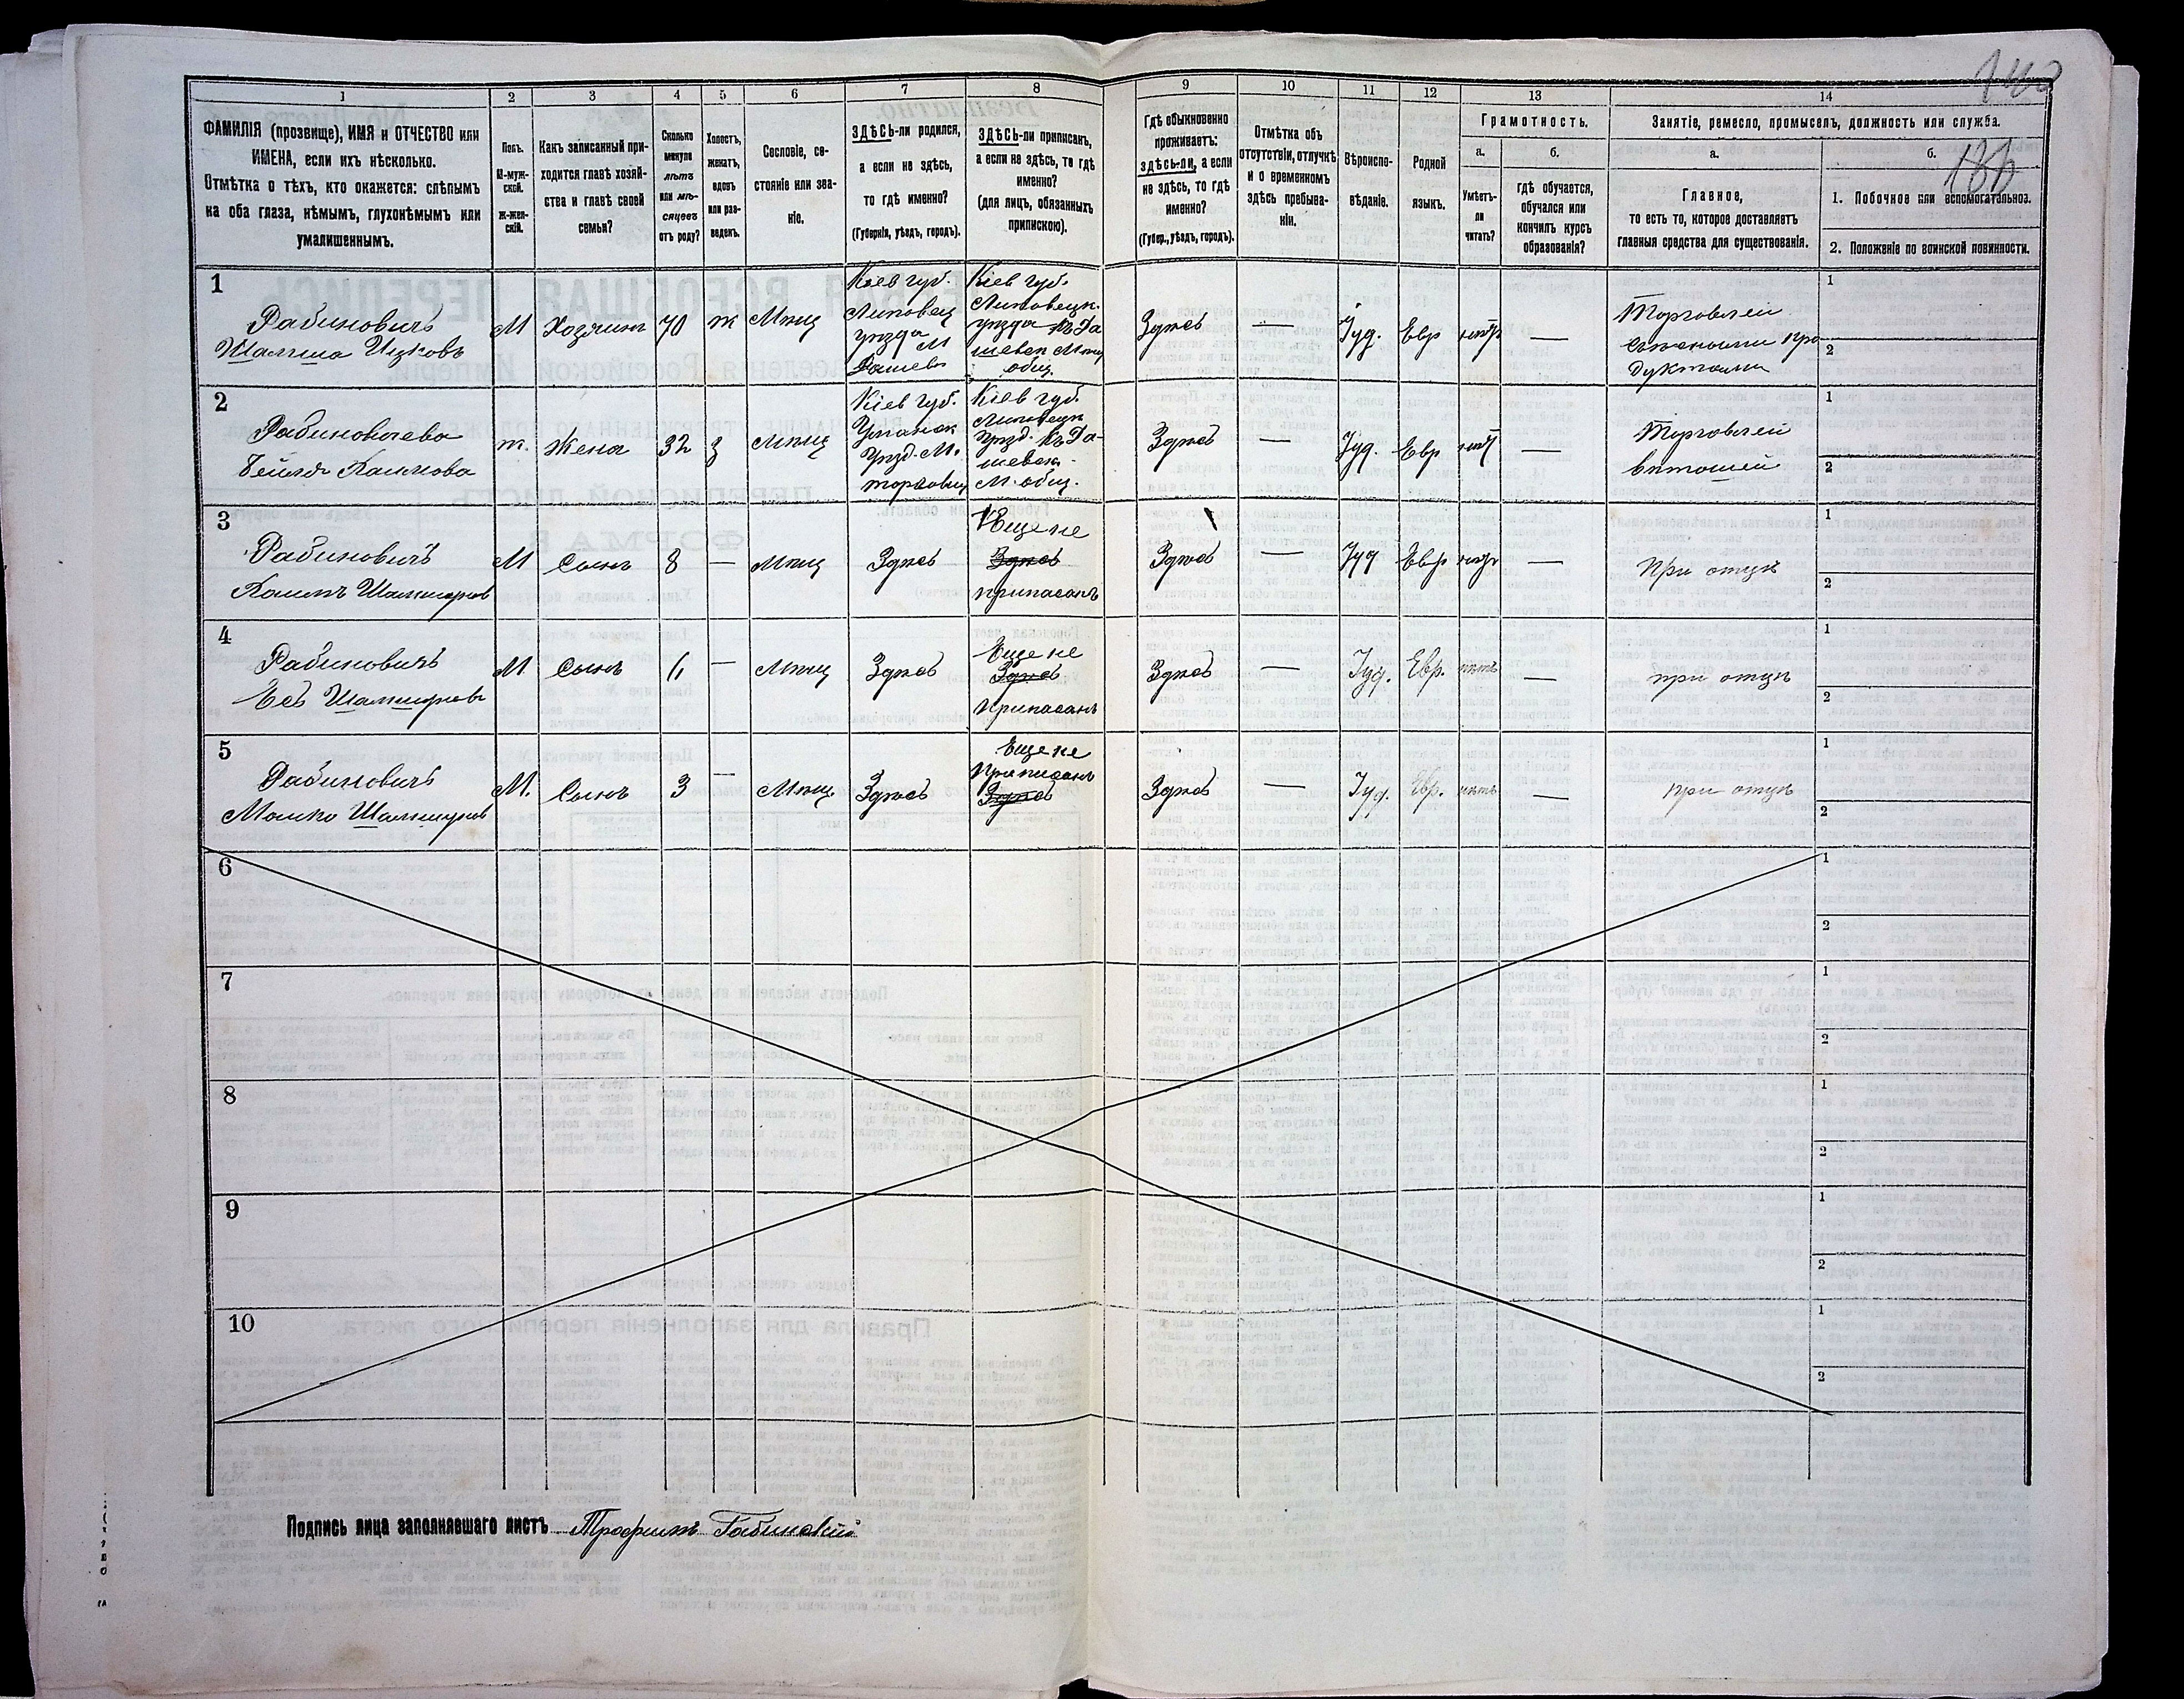 1 2 3 4 5 6 7 8 9 10 11 12 13 14
ФАМИЛІЯ (прозвище), ИМЯ и ОТЧЕСТВО или
ИМЕНА, если ихъ нѣсколько.
Отмѣтка о тѣхъ, кто окажется: слѣпымъ
на оба глаза, нѣмымъ, глухонѣмымъ или
умалишеннымъ.
Полъ.
М-муж-
ской.
Ж-жен-
скій.
Какъ записанный при-
ходится главѣ хозяй-
ства и главѣ своей
семьи?
Сколько
минуло
лѣтъ
или мѣ-
сяцевъ
отъ роду?
Холостъ,
женатъ,
вдовъ
или раз-
веденъ.
Сословіе, со-
стояніе или зва-
ніе.
ЗДѢСЬ-ли родился,
а если не здѣсь,
то гдѣ именно?
(Губернія, уѣздъ, городъ).
ЗДѢСЬ-ли приписанъ,
а если не здѣсь, то гдѣ
именно?
(для лицъ, обязанныхъ
припискою).
Гдѣ обыкновенно
проживаетъ:
здѣсь-ли, а если
не здѣсь, то гдѣ
именно?
(Губер., уѣздъ, городъ).
Отмѣтка объ
отсутствіи, отлучкѣ
и о временномъ
здѣсь пребыва-
ніи.
Вѣроиспо-
вѣданіе.
Родной
языкъ.
Грамотность.
а.
Умѣетъ-
ли
читать?
б.
гдѣ обучается,
обучался или
кончилъ курсъ
образованія?
Занятіе, ремесло, промыселъ, должность или служба.
а.
Главное,
то есть то, которое доставляетъ
главныя средства для существованія.
б.
1. Побочное или вспомогательное.
2. Положеніе по воинской повинности.
1
Рабиновичъ
Ицковъ
М
Хозяинъ
70
ж
Мѣщ
Кіев губ.
Липовец
уѣзда М
Дашевъ
Кіев губ.
Липовецк.
уѣзда къ Да
шевск Мѣщ
общ.
Здѣсь
—
Іуд.
Евр
Торговлей
дуктами
1
2
2
Рабиновичева
Бейля
ж.
Жена
32
з
Мѣщ
Кіев губ.
Уманск
Уѣзд. М.
Торговиц
Кіев губ.
Липовецк
Уѣзд. къ Да-
шевск.
М. общ.
Здѣсь
—
Іуд.
Евр
нѣт
—
Торговлей
1
2
3
Рабиновичъ
М
Сынъ
8
—
Мѣщ
Здѣсь
Еще не
Здѣсь
приписанъ
Здѣсь
—
Іуд
Евр
—
При отцѣ
1
2
4
Рабиновичъ
М
Сынъ
6
—
Мѣщ
Здѣсь
Еще не
Здѣсь
Приписанъ
Здѣсь
—
Іуд.
Евр.
нѣтъ
—
при отцѣ
1
2
5
Рабиновичъ
М.
Сынъ
3
—
Мѣщ.
Здѣсь
Еще не
Приписанъ
Здѣсь
Здѣсь
—
Іуд.
Евр.
нѣтъ
—
при отцѣ
1
2
6
1
2
7
1
2
8
1
2
9
1
2
10
1
2
Подпись лица заполнявшаго листъ Трофимъ Габинскій